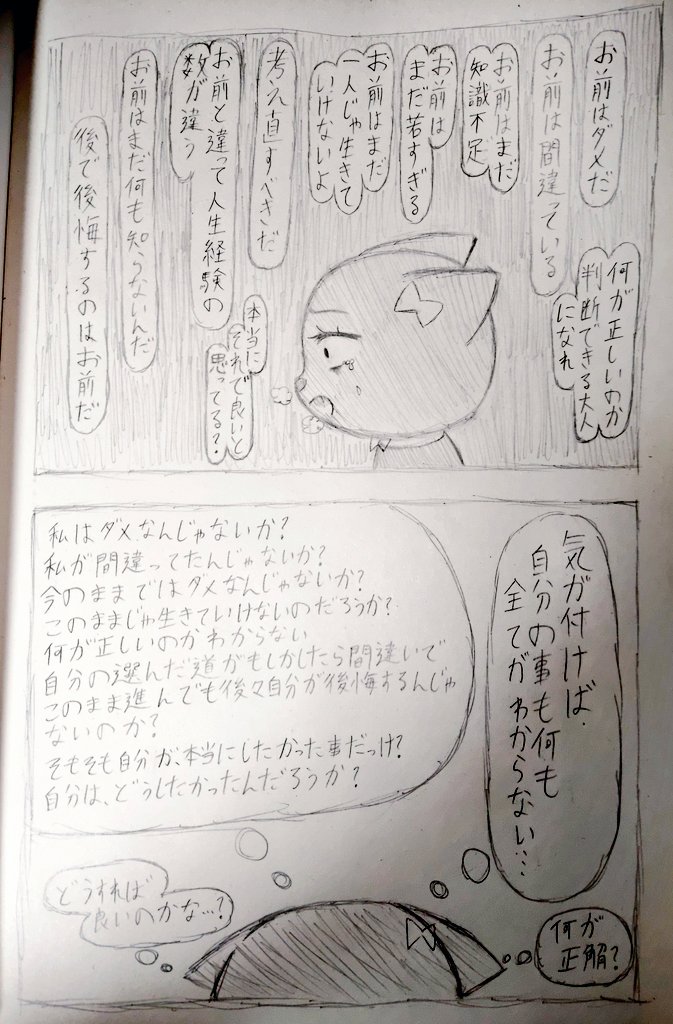 お前はダメだ
何が正しいのか
判断できる大人
になれ
お前は間違っている
お前はまだ
知識不足
お前は
まだ若すぎる
お前はまだ
一人じゃ生きて
いけないよ
考え直すべきだ
本当に
それで良いと
思ってる?
お前と違って人生経験の
数が違う
お前はまだ何も知らないんだ
後で後悔するのはお前だ
気が付けば、
自分の事も何も
全てがわからない…
私はダメなんじゃないか?
私が間違ってたんじゃないか?
今のままではダメなんじゃないか?
このままじゃ生きていけないのだろうか?
何が正しいのかわからない
自分の選んだ道がもしかしたら間違いで
このまま進んでも後々自分が後悔するんじゃ
ないのか?
そもそも自分が、本当にしたかった事だっけ?
自分は、どうしたかったんだろうか?
何が
正解?
どうすれば
良いのかな…?